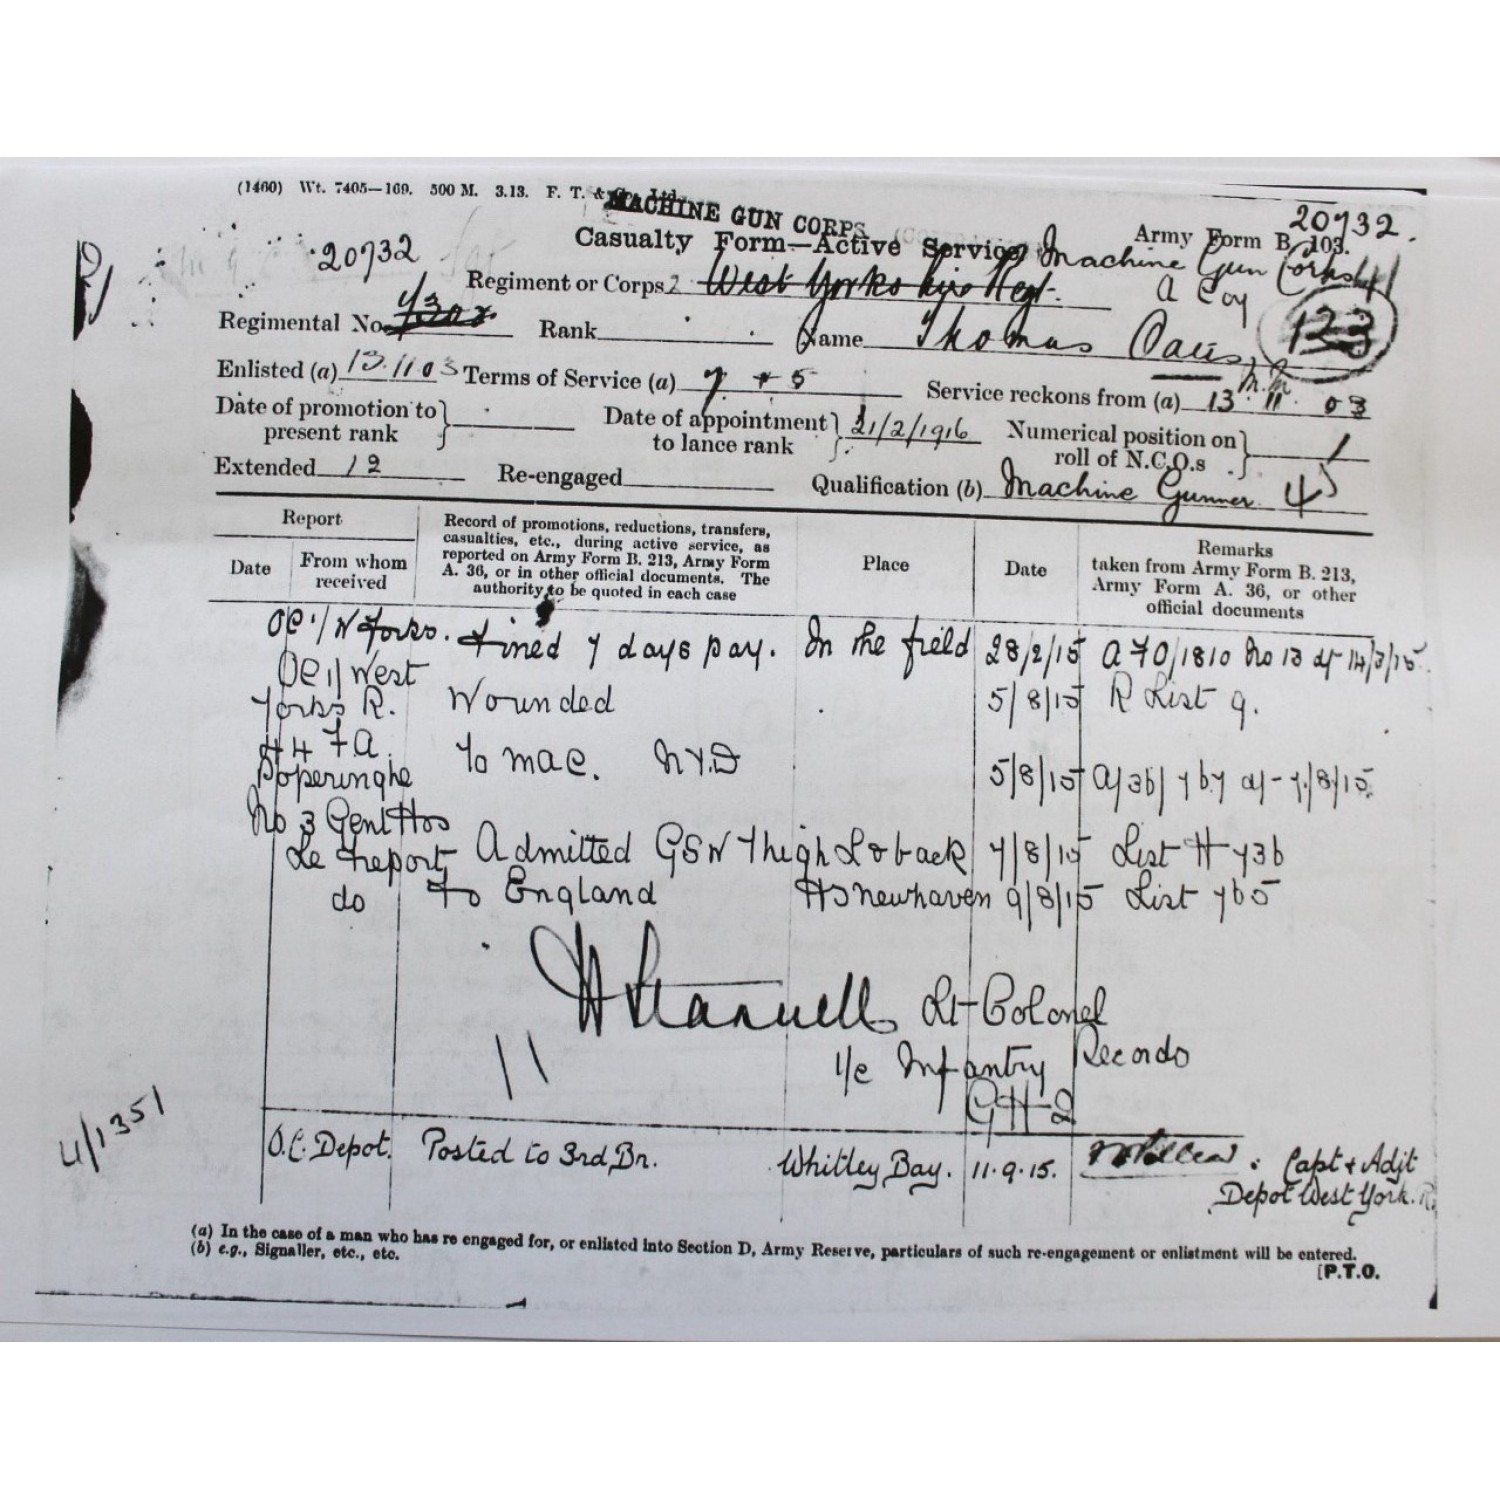 (1460) Wt. 7405—169. 500 M. 3.13. F. T. & Co. Ltd.
MACHINE GUN CORPS
20732.
Army Form B. 103.
20732
Casualty Form—Active Service
Machine Gun Corps
Regiment or Corps West Yorkshire Regt.
A Coy
123
Regimental No. Rank Name Thomas
M.M.
Enlisted (a) 13.11.03 Terms of Service (a) 7 + 5 Service reckons from (a) 13 11 03
Date of promotion to present rank } Date of appointment to lance rank } 21/2/1916 Numerical position on roll of N.C.O.s } 1
Extended 12 Re-engaged Qualification (b) Machine Gunner
Report
Date
From whom received
Record of promotions, reductions, transfers, casualties, etc., during active service, as reported on Army Form B. 213, Army Form A. 36, or in other official documents. The authority to be quoted in each case
Place
Date
Remarks taken from Army Form B. 213, Army Form A. 36, or other official documents
OC 1/W Yorks. Fined 7 days pay. In the field 28/2/15 A FO/1810 No 13 of 14/3/15.
OC 1/West
Yorks R. Wounded 5/8/15 R List 9.
FA
Poperinghe To MAC. NYD 5/8/15
No 3 Genl Hos
Le Treport Admitted GSW Thigh L & back 7/8/15 List H 736
do To England HS Newhaven 9/8/15 List 765
Lt-Colonel
I/c Infantry Records
GHQ
4/1351
O.C. Depot. Posted to 3rd Bn. Whitley Bay. 11.9.15. Capt & Adjt
Depot West York. R.
(a) In the case of a man who has re engaged for, or enlisted into Section D, Army Reserve, particulars of such re-engagement or enlistment will be entered.
(b) e.g., Signaller, etc., etc.
[P.T.O.